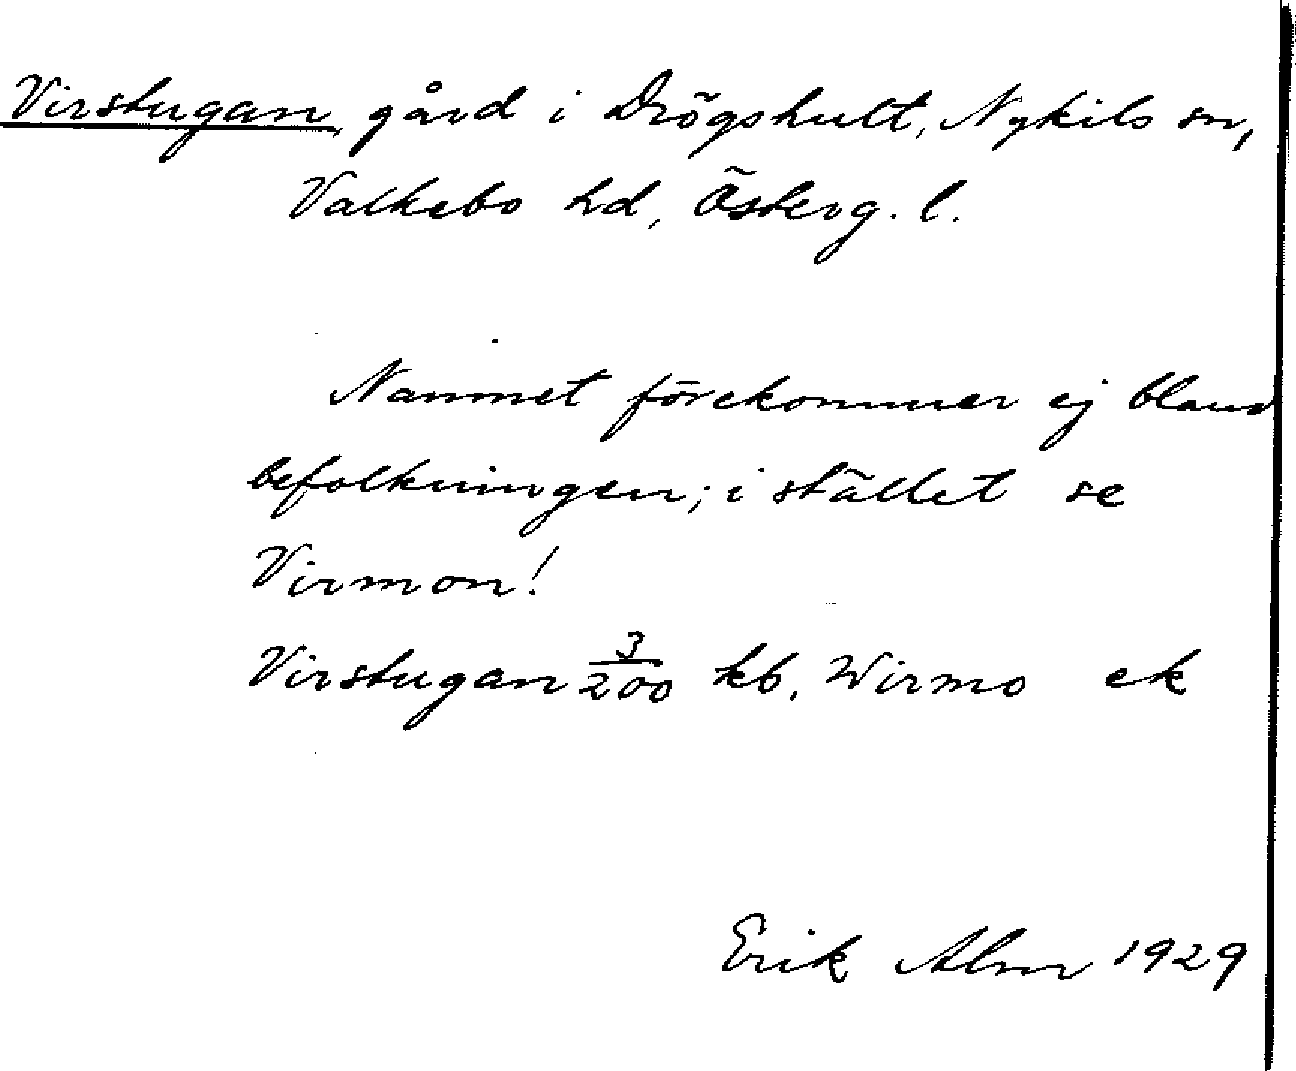 Virstugan, gård i Drögshult, Nykils sn,
Valkebo hd, Österg. l.
Namnet förekommer ej bland
befolkningen; i stället se
Virmon!
Virstugan 3/200 kb. Wirmo ek
Erik Alm 1929